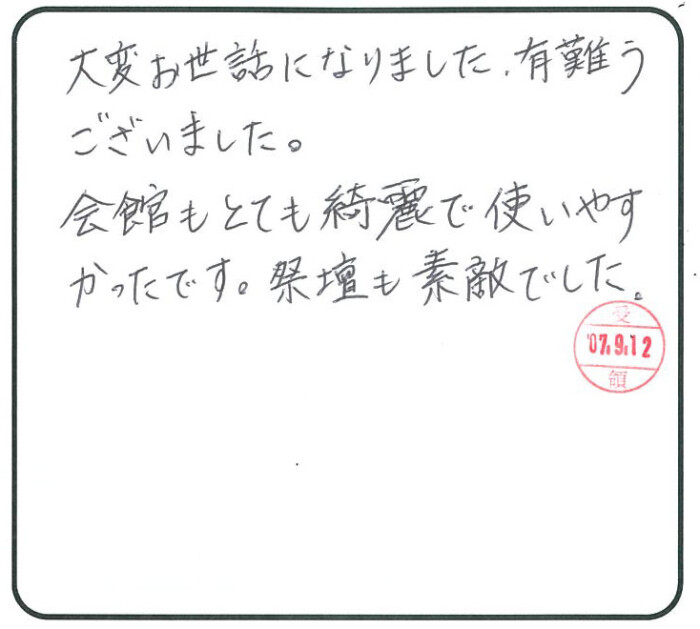 大変お世話になりました、有難う
ございました。
会館もとても綺麗で使いやす
かったです。祭壇も素敵でした。
受
'07.9.12
領